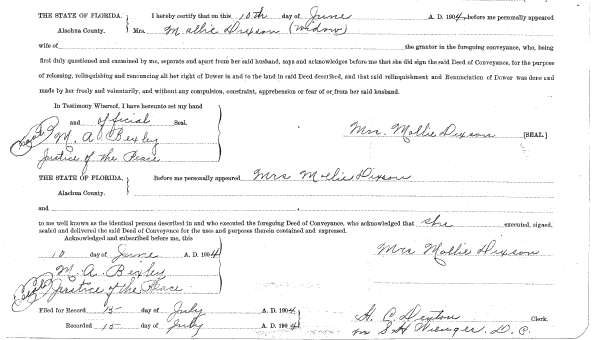 THE STATE OF FLORIDA, I hereby certify that on this 10th day of June A. D. 1904, before me personally appeared
Alachua County. Mrs. Mollie Dixson (widow)
wife of the grantor in the foregoing conveyance, who, being
first duly questioned and examined by me, separate and apart from her said husband, says and acknowledges before me that she did sign the said Deed of Conveyance, for the purpose
of releasing, relinquishing and renouncing all her right of Dower in and to the land in said Deed described, and that said relinquishment and Renunciation of Dower was done and
made by her freely and voluntarily, and without any compulsion, constraint, apprehension or fear of or from her said husband.
In Testimony Whereof, I have hereunto set my hand
and official Seal.
Seal M. A. Bexley Mrs. Mollie Dixson [SEAL.]
Justice of the Peace
THE STATE OF FLORIDA, Before me personally appeared Mrs Mollie Dixson
Alachua County.
and
to me well known as the identical persons described in and who executed the foregoing Deed of Conveyance, who acknowledged that she executed, signed,
sealed and delivered the said Deed of Conveyance for the uses and purposes therein contained and expressed.
Acknowledged and subscribed before me, this
10 day of June A. D. 1904 Mrs Mollie Dixson
M. A. Bexley
Seal Justice of the Peace
Filed for Record 15 day of July A. D. 1904 H. C. Denton Clerk.
Recorded 15 day of July A. D. 1904 per S. H. Wienges, D. C.